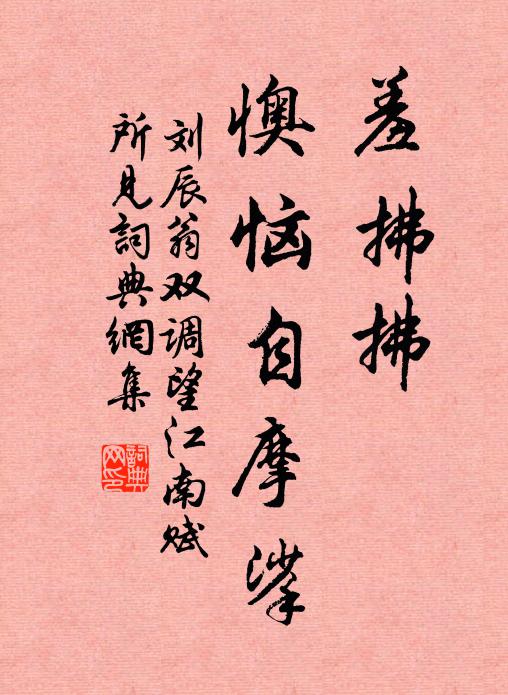 羞拂拂
懊恼自摩挲
刘辰翁双调望江南赋
所见詞典網集
詞典
网印